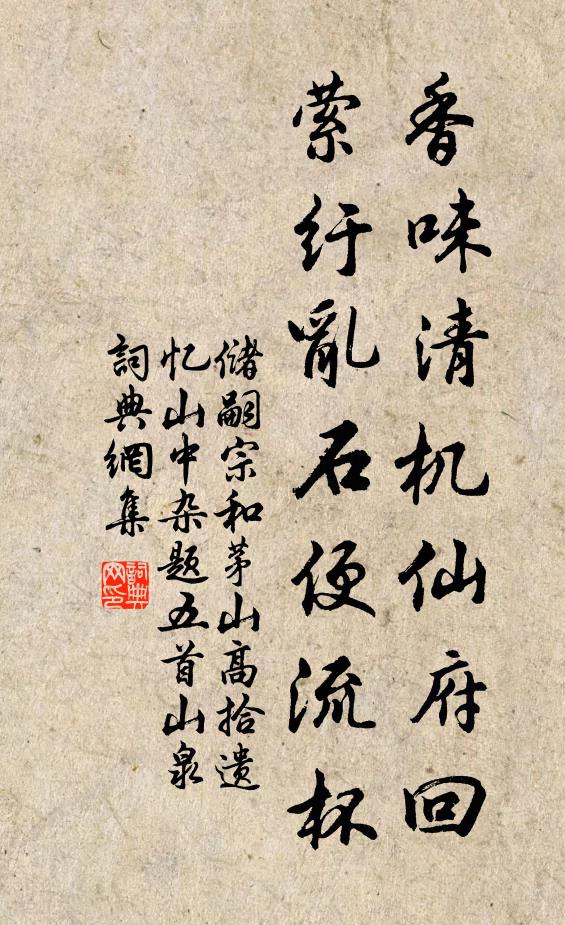 香味清机仙府回
萦纡亂石便流杯
储嗣宗和茅山高拾遗
忆山中杂题五首山泉
詞典網集
詞典
网